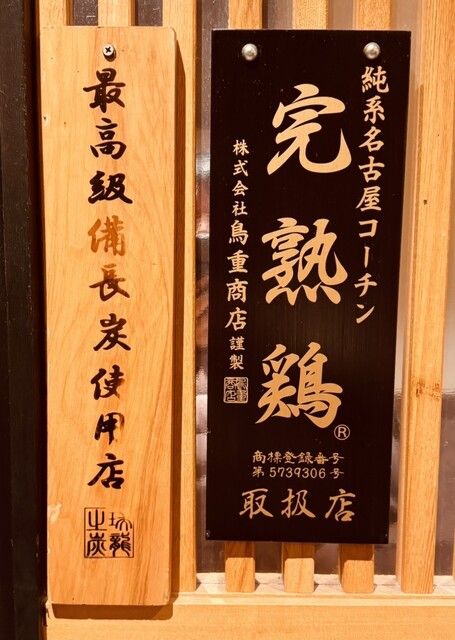 最高級備長炭使用店
純系名古屋コーチン
完熟鶏®
株式会社鳥重商店謹製
商標登録番号
第5739306号
取扱店